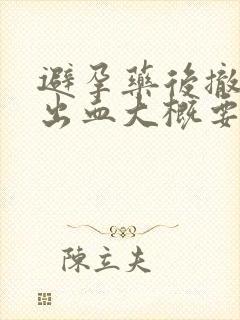 避孕藥後撤
出血大概要
陳立夫